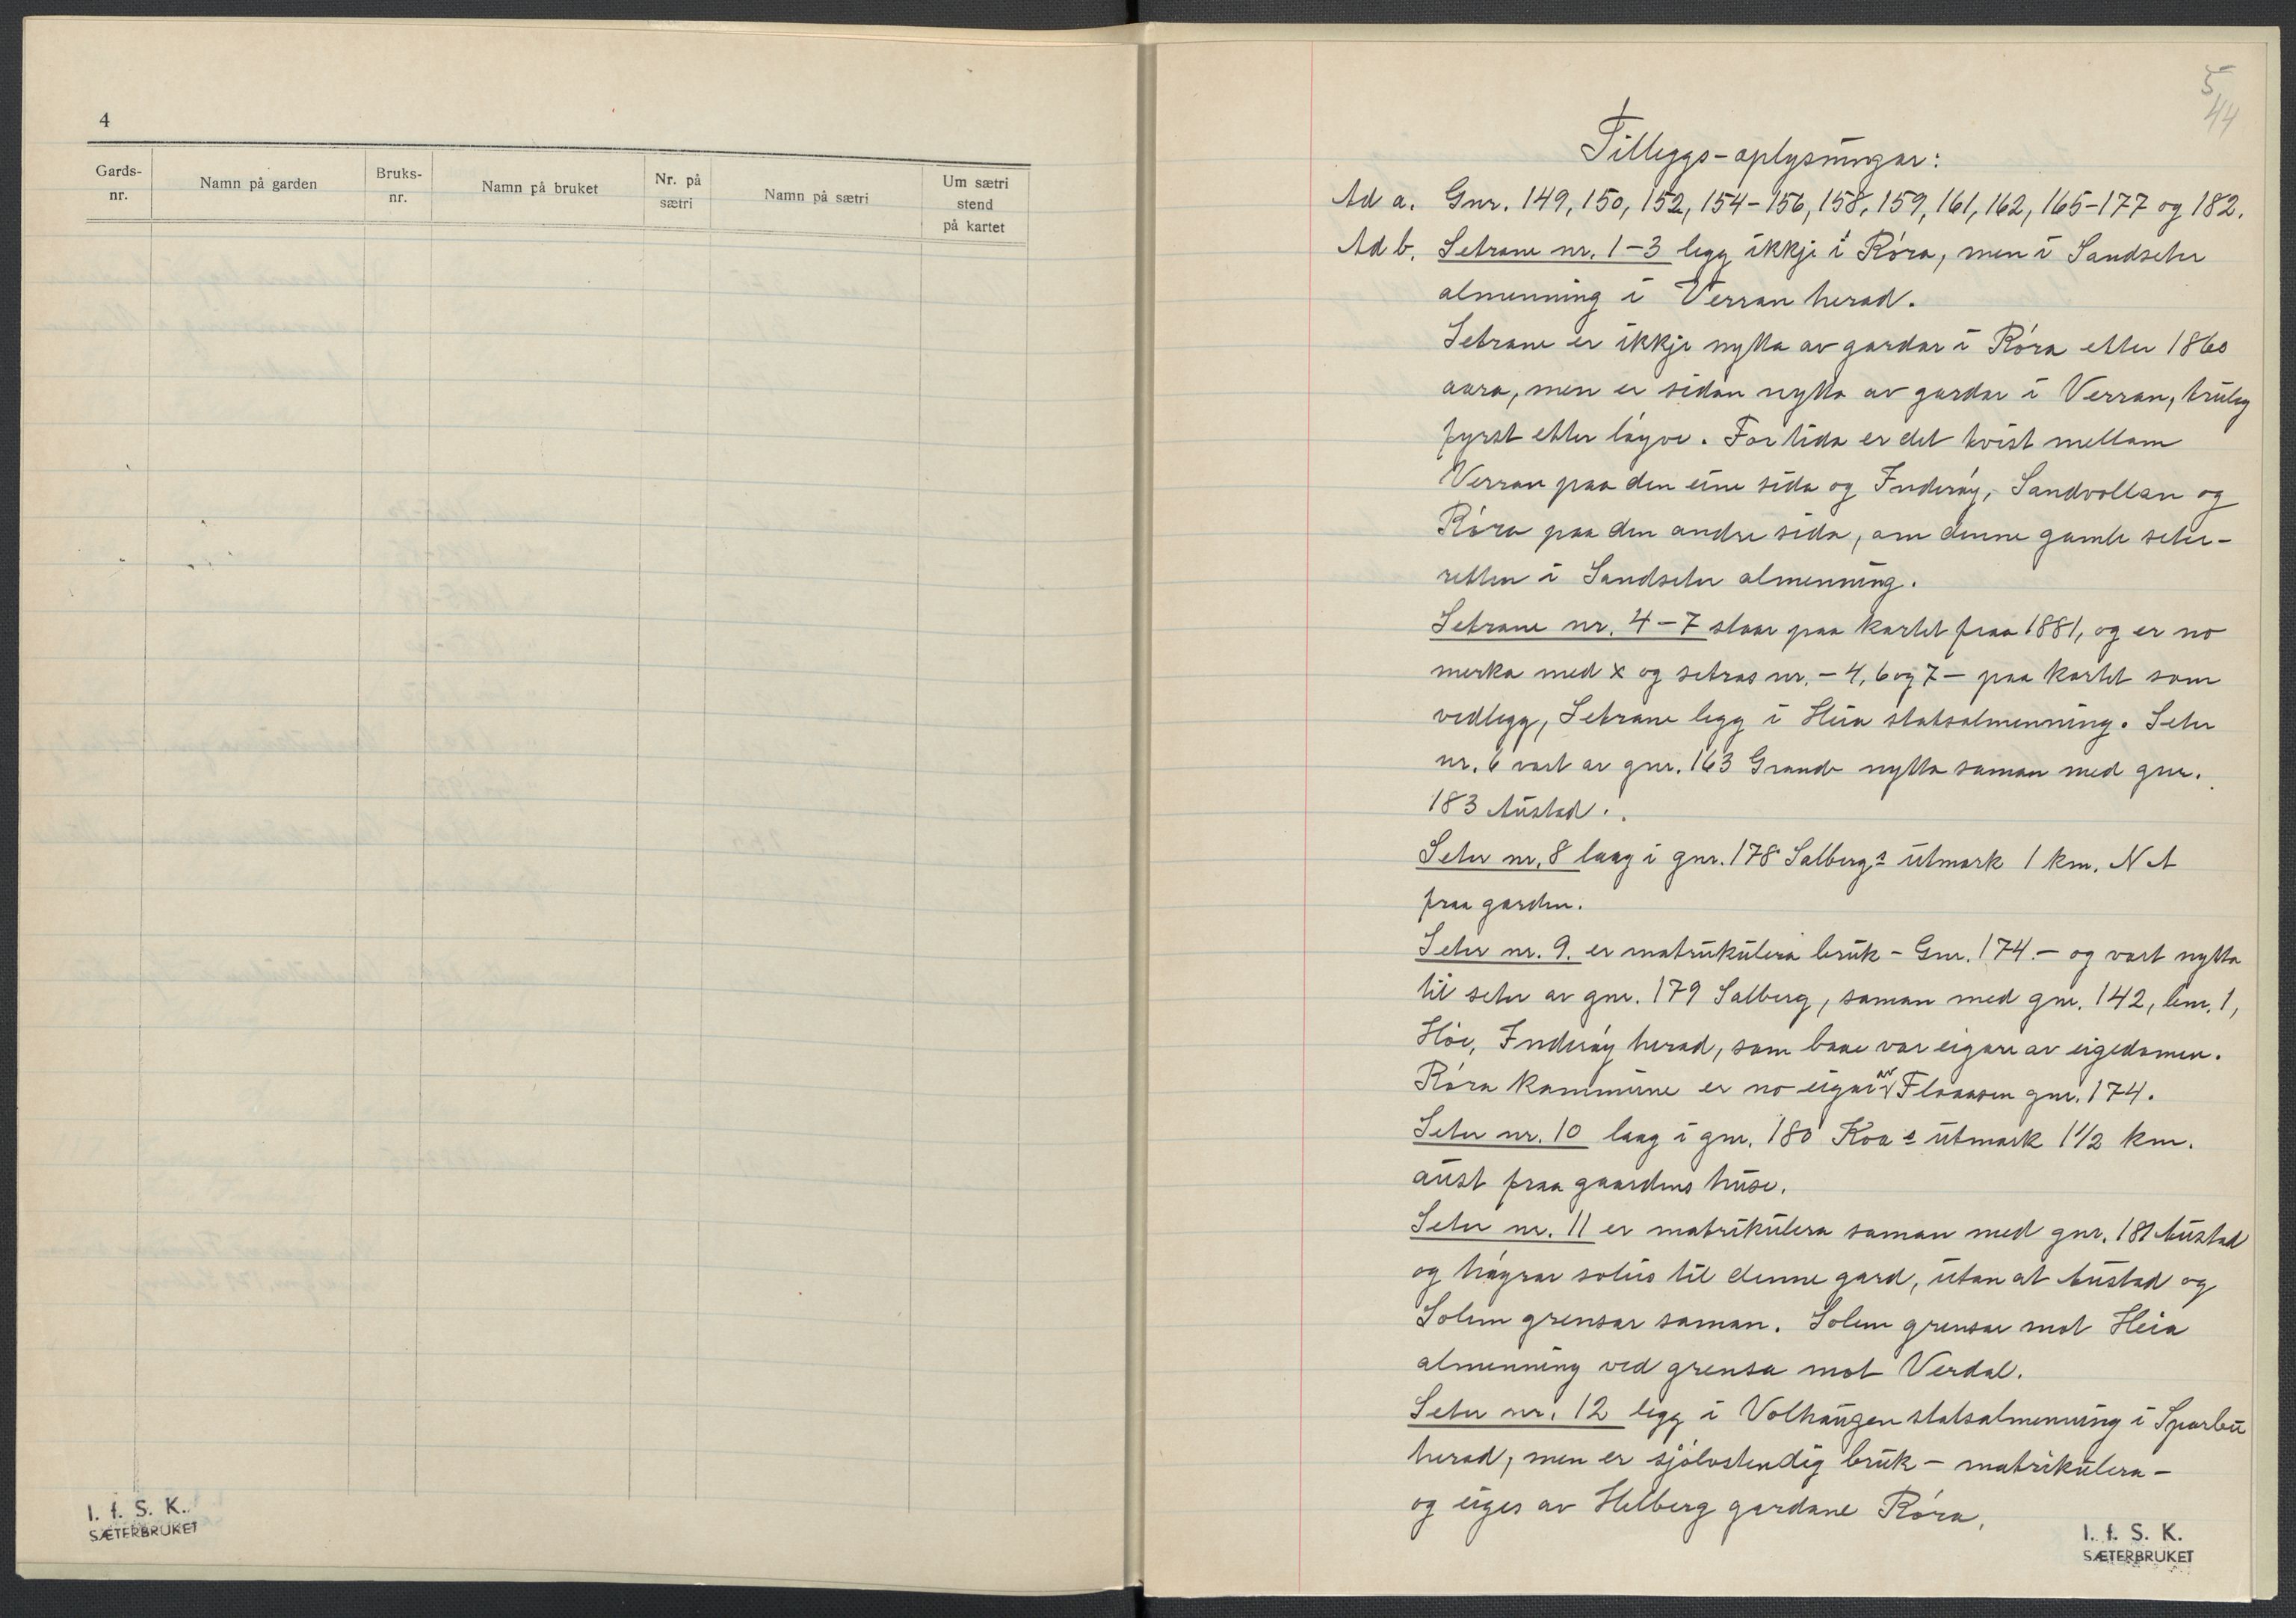 4
Gards-
nr.
Namn på garden
Bruks-
nr.
Namn på bruket
Nr. på
sætri
Namn på sætri
Um sætri
stend
på kartet
I. f. S. K.
SÆTERBRUKET
5
44
Tilleggs-oplysningar:
Ad a. Gnr. 149, 150, 152, 154-156, 158, 159, 161, 162, 165-177 og 182.
Ad b. Setrane nr. 1-3 legg ikkje i Róra, men i Sandseter
almenning i Verran herad.
Setrane er ikkje nytta av gardar i Róra etter 1860
aara, men er sidan nytta av gardar i Verran, truleg
fyrst etter lóyve. For tida er det tvist mellom
Verran paa den eine sida og Inderóy, Sandvollan og
Róra paa den andre sida, om denne gamle seter-
retten i Sandseter almenning.
Setrane nr. 4-7 staar paa kartet fraa 1881, og er no
merka med x og setras nr. - 4, 6 og 7 - paa kartet som
vedlegg, Setrane legg i Heia statsalmenning. Seter
nr. 6 vart av gnr. 163 Grande nytta saman med gnr.
183 Austad.
Seter nr. 8 laag i gnr. 178 Salbergs utmark 1 km. NA
fraa garden.
Seter nr. 9. er matrukulera bruk - Gnr. 174. - og vart nytta
til seter av gnr. 179 Salberg, saman med gnr. 142, bnr. 1,
Hóe, Inderóy herad, som baae var eigare av eigedomen.
Róra kommune er no eigar av Flaasen gnr. 174.
Seter nr. 10 laag i gnr. 180 Koa s utmark 1 1/2 km.
aust fraa gaardens huse.
Seter nr. 11 er matrikulera saman med gnr. 181 Austad
og hóyrar soleis til denne gard, utan at Austad og
Solem grensar saman. Solem grensar mot Heia
almenning ved grensa mot Verdal.
Seter nr. 12 legg i Volhaugen statsalmenning i Sparbu
herad, men er sjólvstendig bruk - matrikulera -
og eiges av Helberg gardane Róra.
I. f. S. K.
SÆTERBRUKET